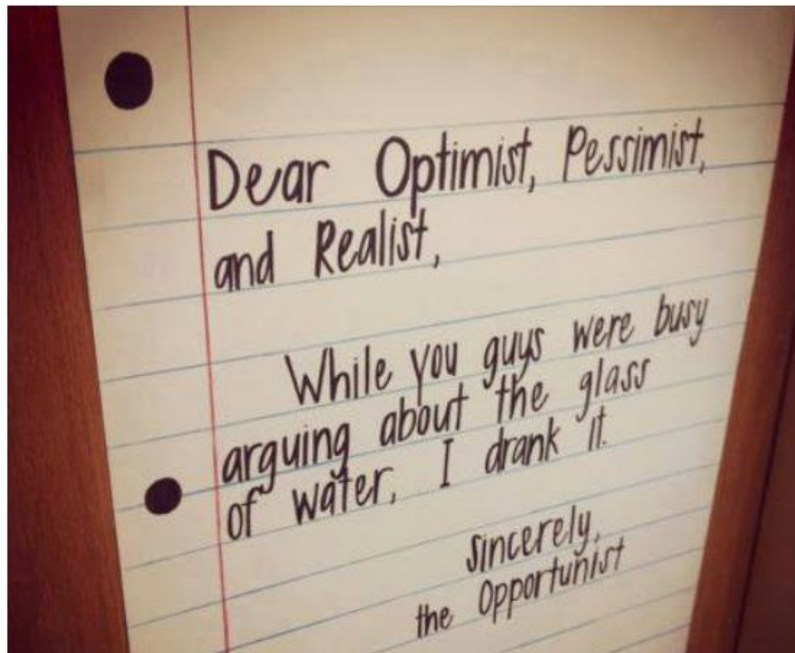 Dear Optimist, Pessimist,
and Realist,
While you guys were busy
arguing about the glass
of water, I drank it.
sincerely,
the Opportunist